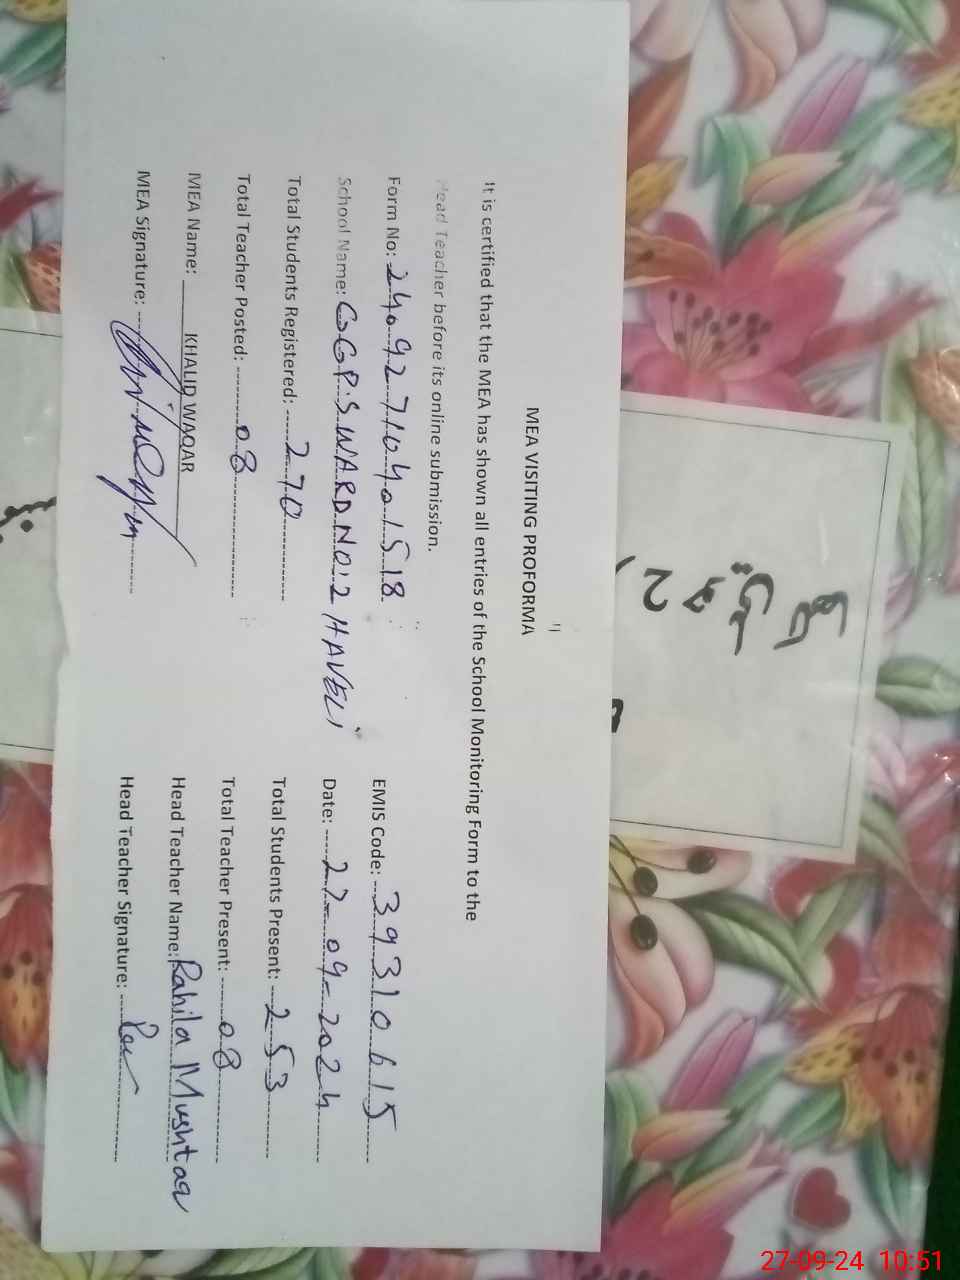 MEA VISITING PROFORMA
It is certified that the MEA has shown all entries of the School Monitoring Form to the
Head Teacher before its online submission.
Form No: 24092710401518 EMIS Code: 39310615
School Name: GGPS WARD NO:2 HAVELI Date: 27-09-2024
Total Students Registered: 270 Total Students Present: 253
Total Teacher Posted: 08 Total Teacher Present: 08
MEA Name: KHALID WAQAR Head Teacher Name: Rahila Mushtaq
MEA Signature: Head Teacher Signature:
2
27-09-24 10:51